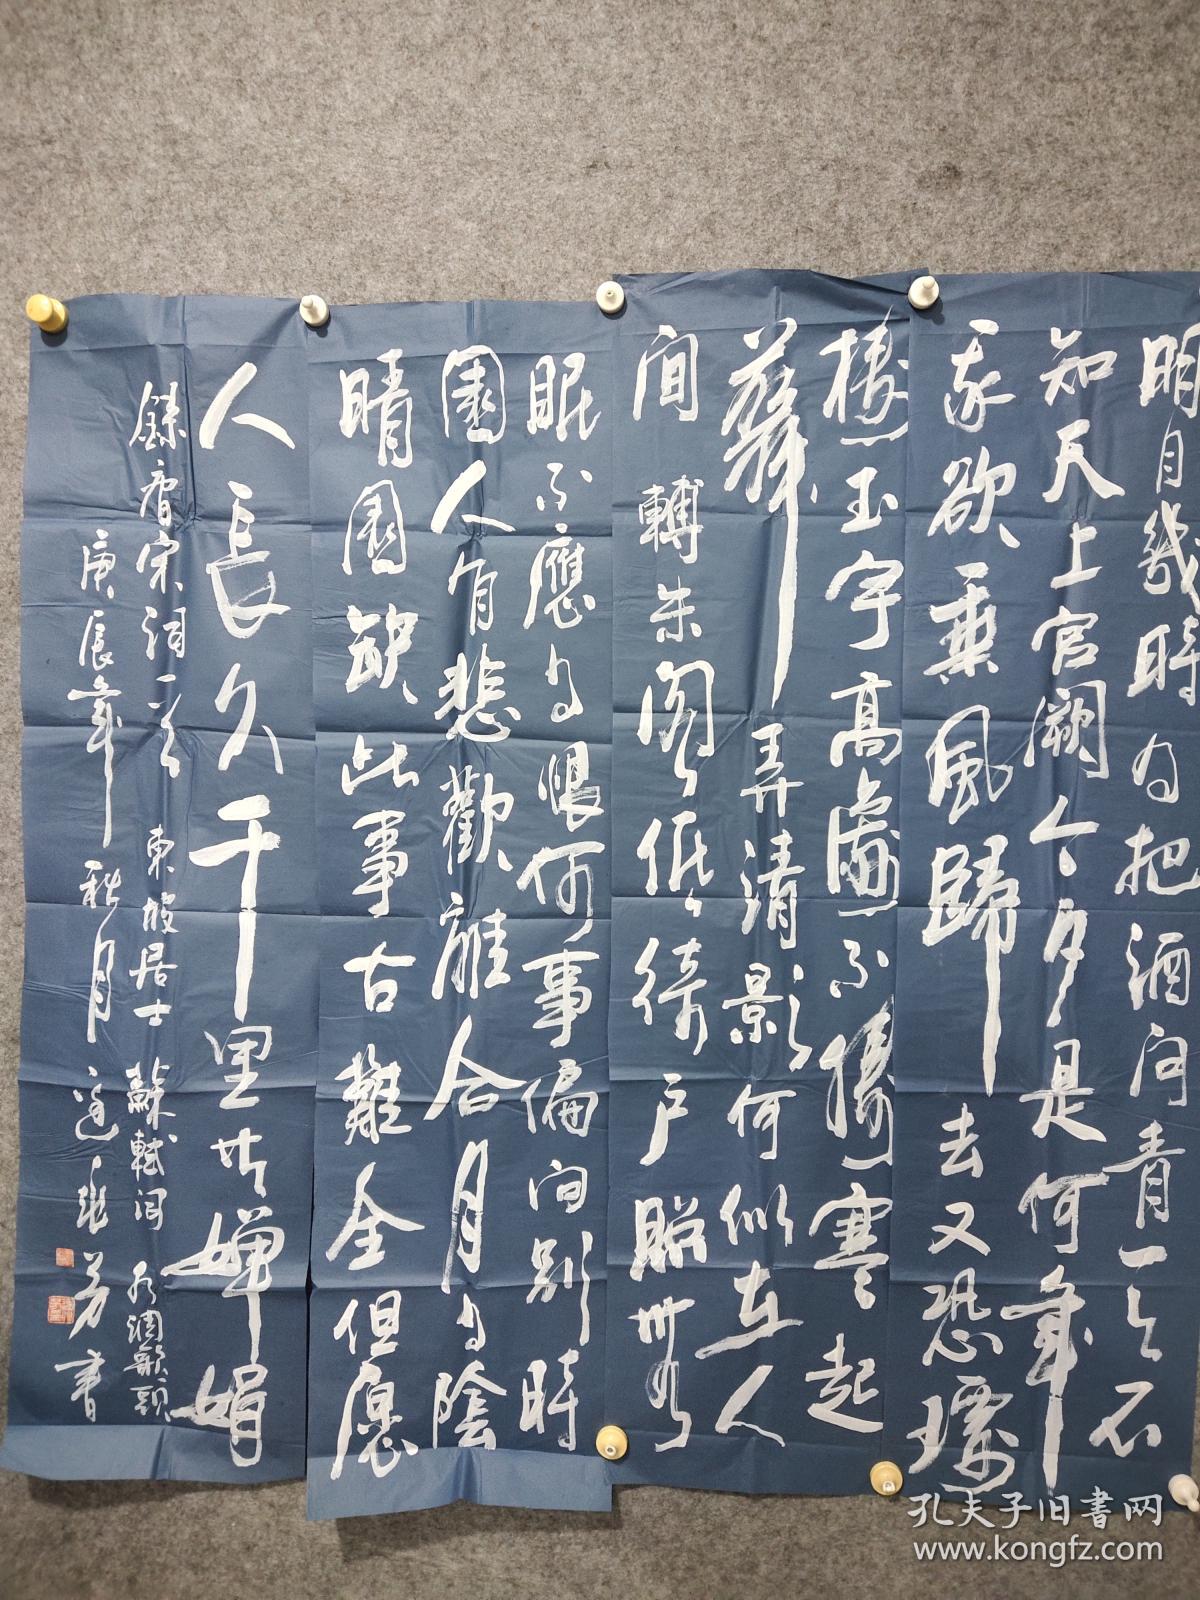 明月幾時為把酒问青天不
知天上宮阙今夕是何年
我欲乘風歸去又恐瓊
樓玉宇高處不勝寒起
舞弄清影何似在人
间轉朱阁低绮户照無
眠不應为恨何事偏向别時
圓人有悲歡離合月为陰
晴圓缺此事古難全但愿
人長久千里共嬋娟
錄唐宋词一首 東坡居士 蘇軾词 水调歌頭
庚辰年秋月 書
孔夫子旧书网
www.kongfz.com